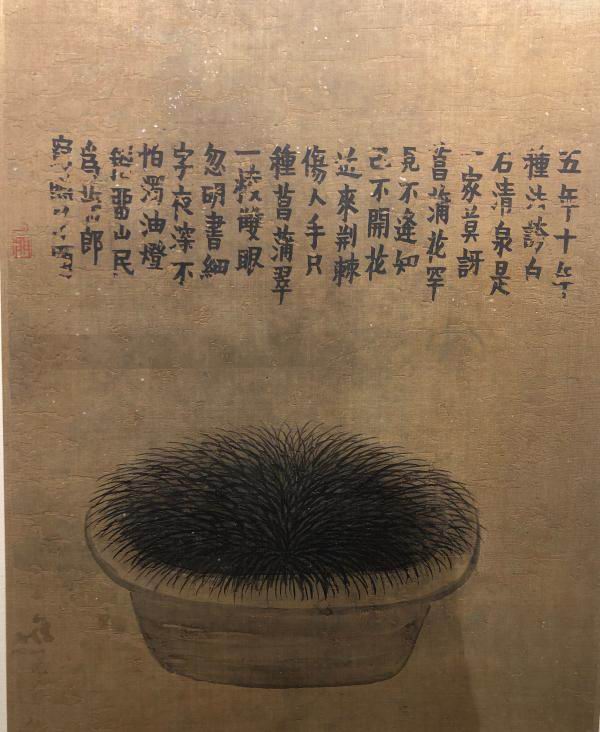 五年十年
種法誇白
石清泉是
一家莫訝
菖蒲花罕
見不逢知
己不開花
近來荊棘
傷人手只
種菖蒲翠
一眼
忽明書細
字夜深不
怕濁油燈
稽留山民
郎